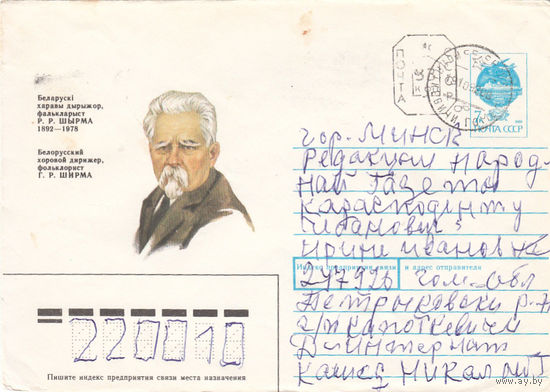 Беларускі
харавы дырыжор,
фалькларыст
Р. Р. ШЫРМА
1892—1978
Белорусский
хоровой дирижер,
фольклорист
Г. Р. ШИРМА
ПОЧТА
ПОЧТА СССР
гор. МИНСК
Редакции Народ-
най газеты
Чебанович
Ирине Ивановне
Индекс предприятия связи и адрес отправителя
247926 гом. обл
Петрыковски р-н
Д-интернат
220010
Пишите индекс предприятия связи места назначения
www.ay.by